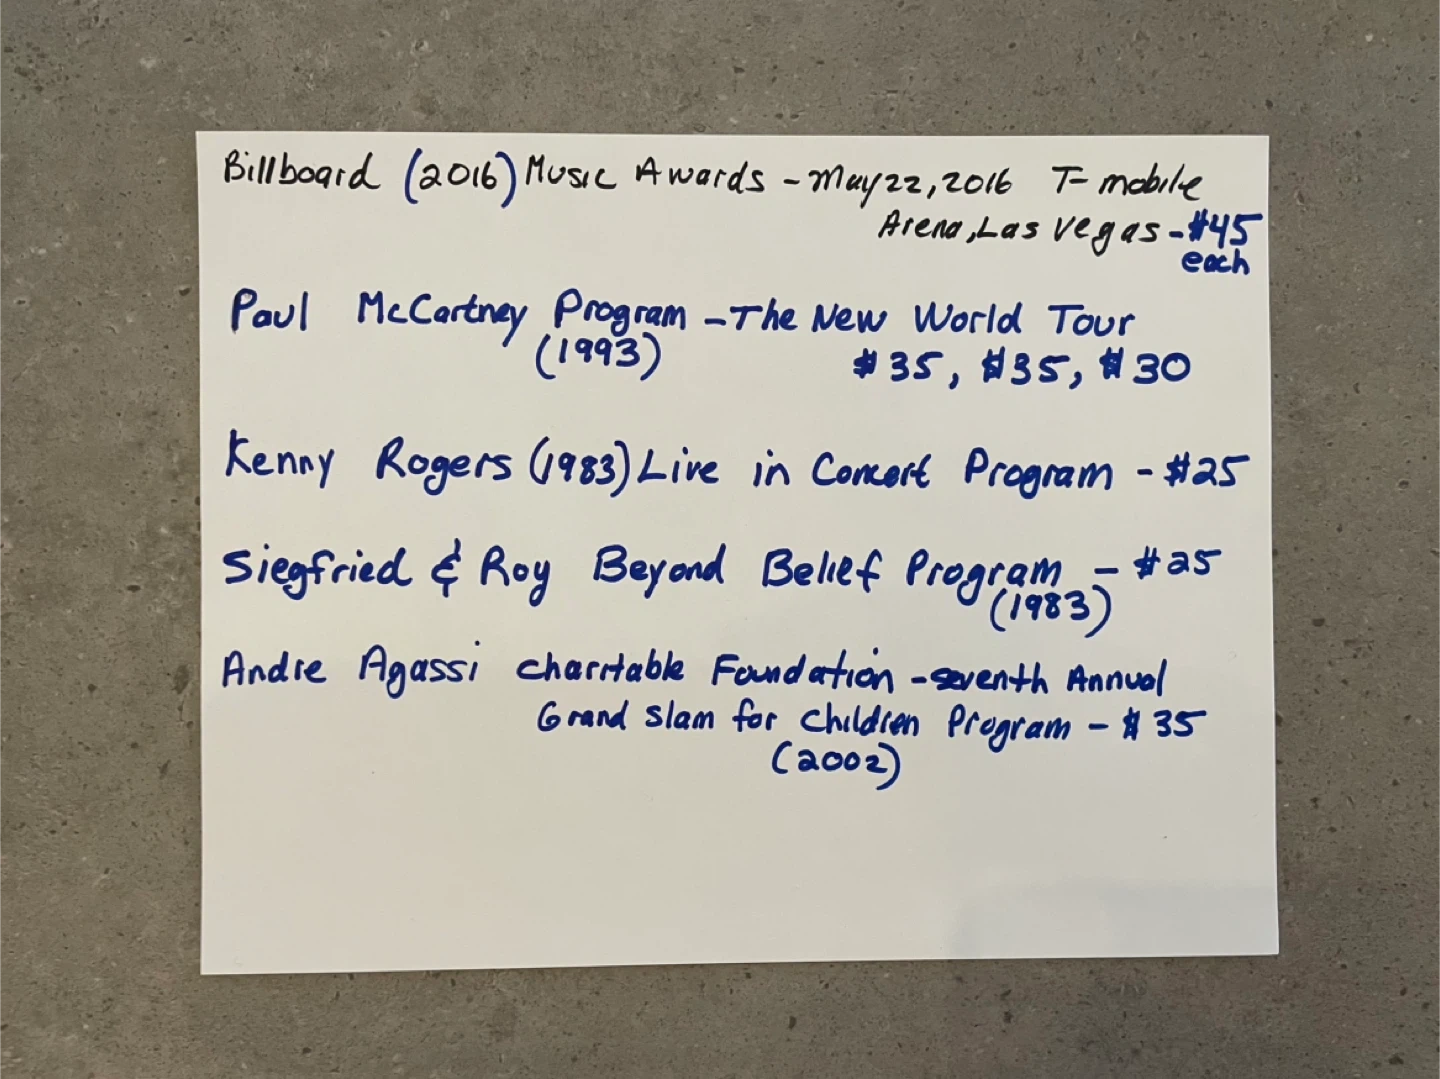 Billboard (2016) Music Awards - May 22, 2016 T-mobile
Arena, Las Vegas - $45
each
Paul McCartney Program - The New World Tour
(1993) $35, $35, $30
Kenny Rogers (1983) Live in Concert Program - $25
Siegfried & Roy Beyond Belief Program - $25
(1983)
Andre Agassi Charitable Foundation - Seventh Annual
Grand Slam for Children Program - $35
(2002)